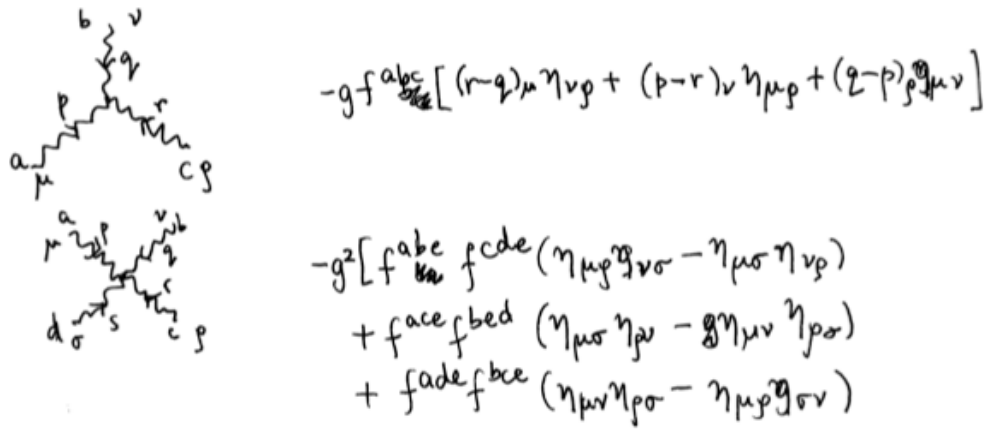 b ν
q
p
r
a
μ
c ρ
-g f^{abc} [ (r-q)_μ η_{νρ} + (p-r)_ν η_{μρ} + (q-p)_ρ η_{μν} ]
a ν b
μ p
q
r
d σ s c ρ
-g² [ f^{abe} f^{cde} ( η_{μρ} η_{νσ} - η_{μσ} η_{νρ} )
+ f^{ace} f^{bed} ( η_{μσ} η_{ρν} - η_{μν} η_{ρσ} )
+ f^{ade} f^{bce} ( η_{μν} η_{ρσ} - η_{μρ} η_{σν} )